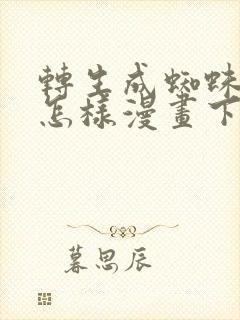 轉生成蜘蛛
怎樣漫畫下
暮思辰